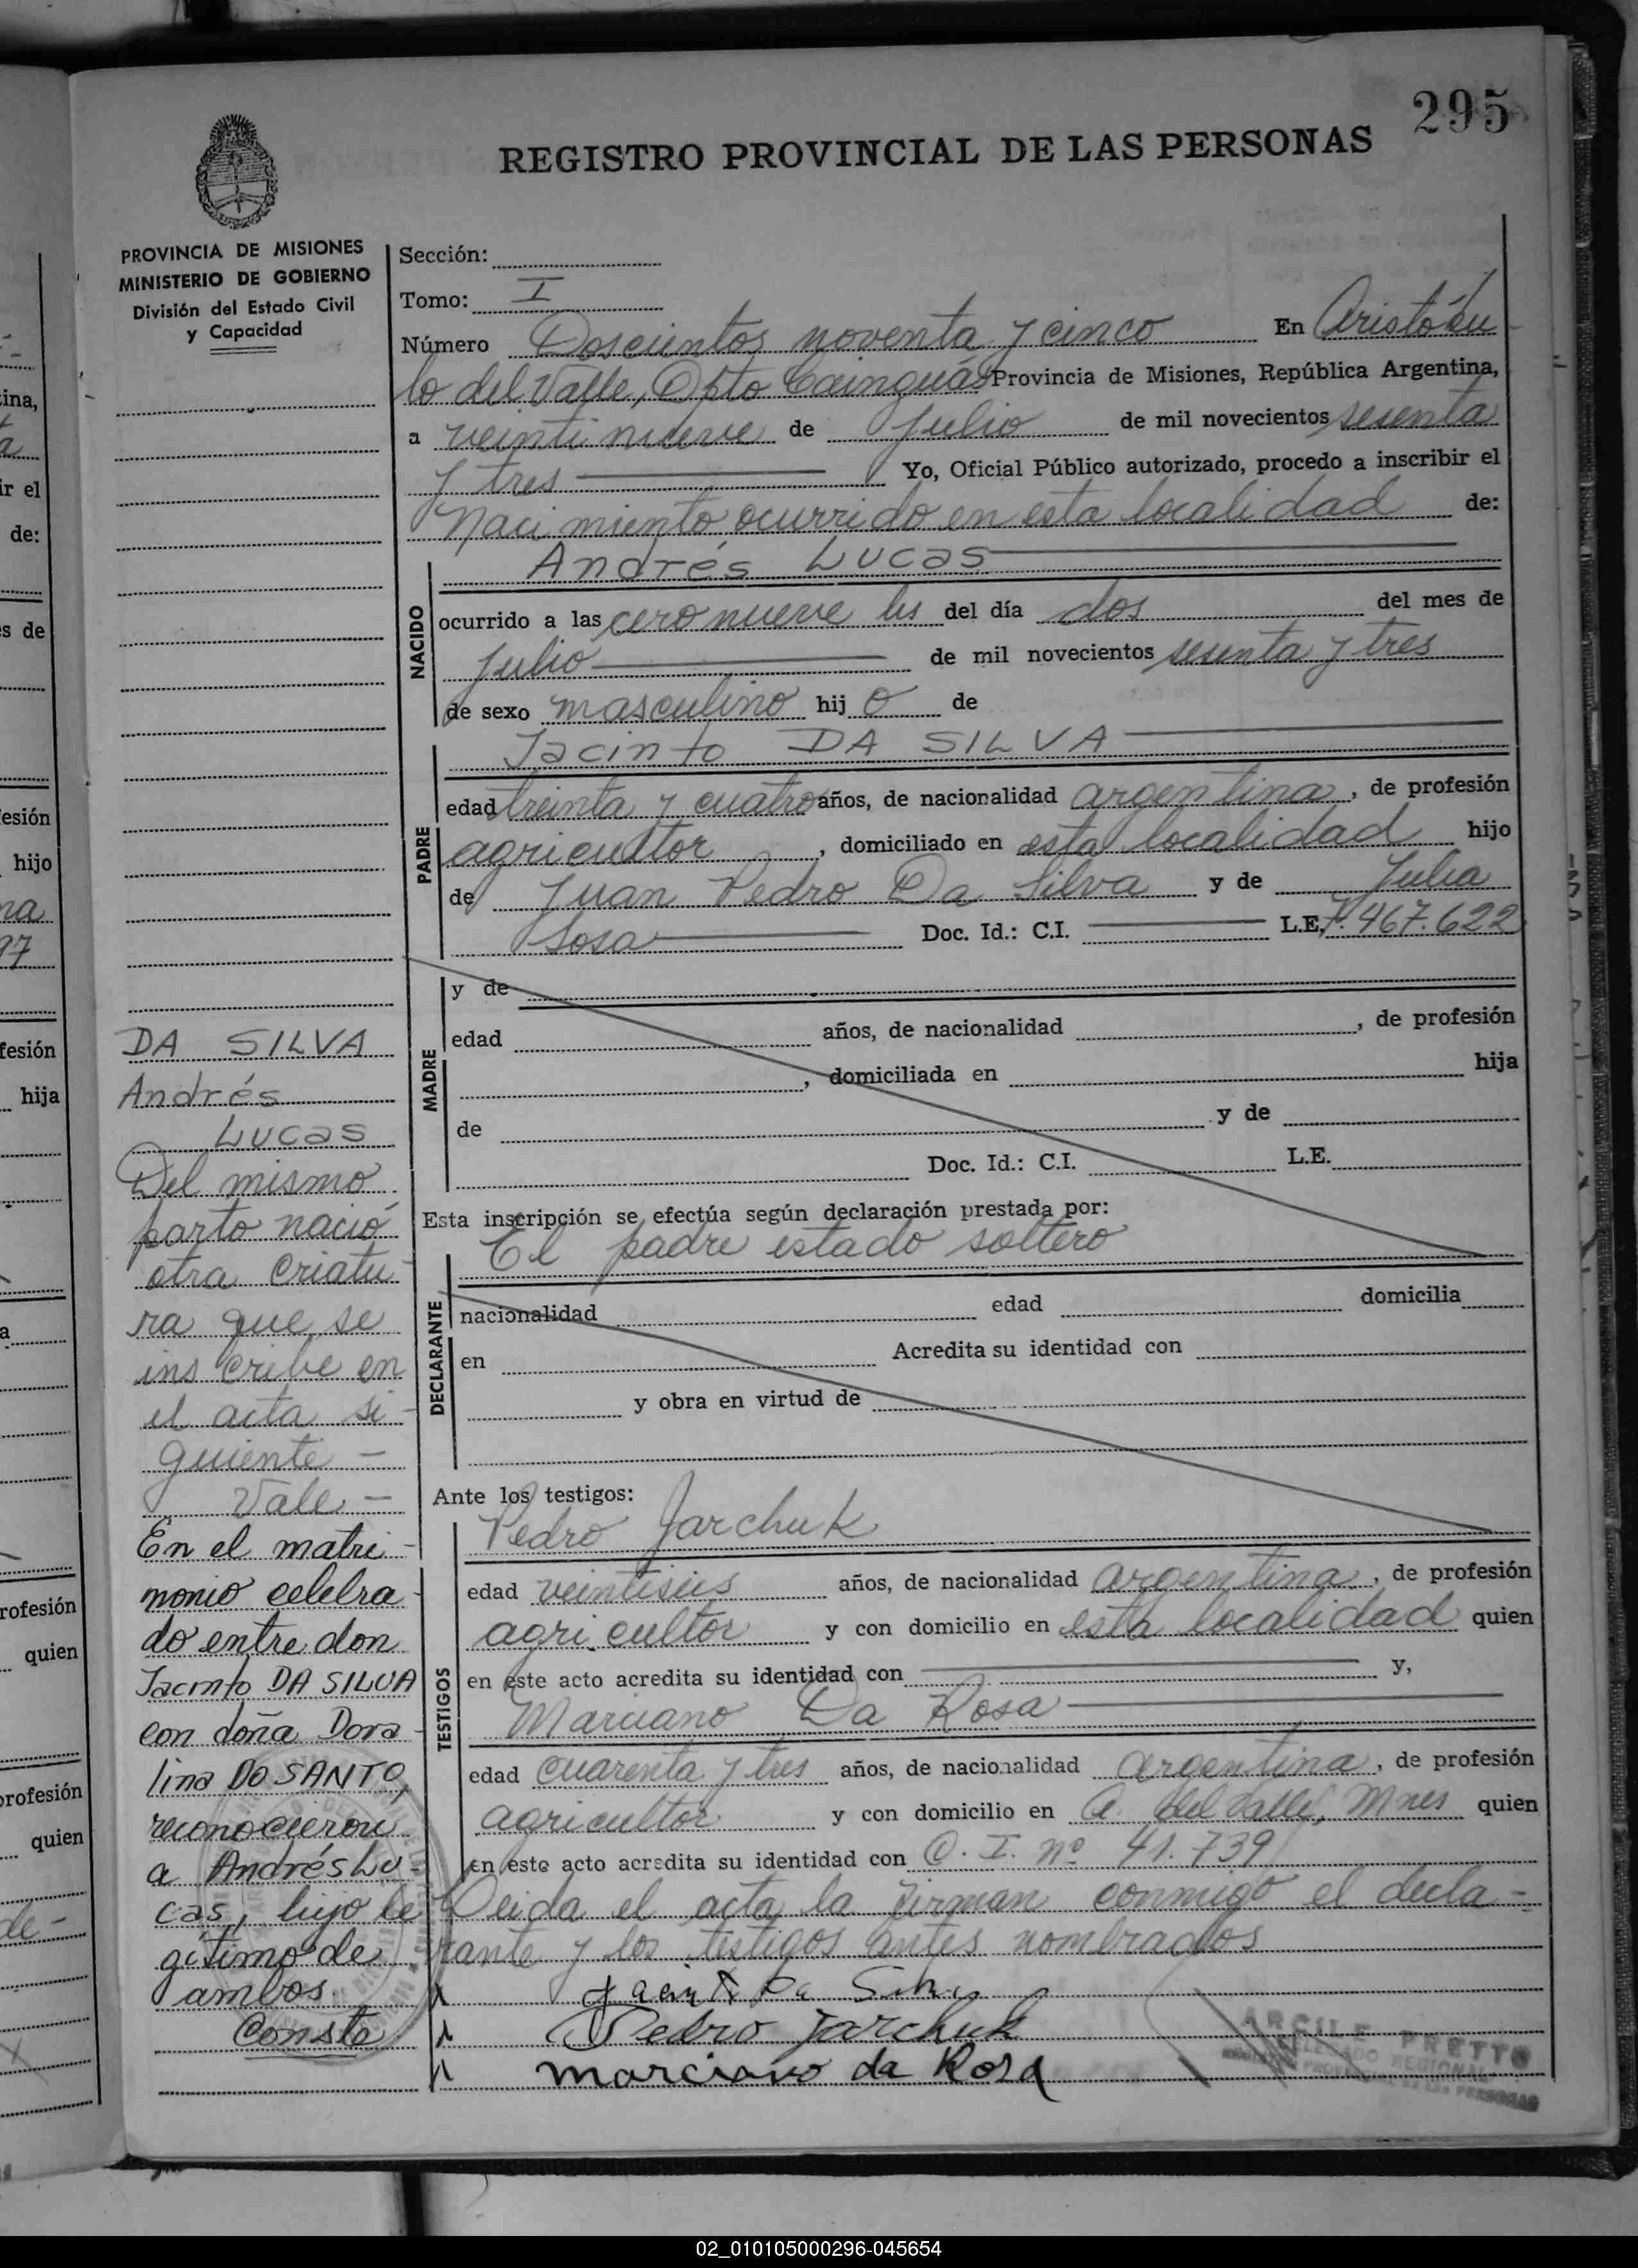 295
REGISTRO PROVINCIAL DE LAS PERSONAS
PROVINCIA DE MISIONES
MINISTERIO DE GOBIERNO
División del Estado Civil
y Capacidad
Sección:
Tomo: I
Número Doscientos noventa y cinco En Aristóbu-
lo del Valle, Dpto Cainguás Provincia de Misiones, República Argentina,
a veintinueve de Julio de mil novecientos sesenta
y tres Yo, Oficial Público autorizado, procedo a inscribir el
Nacimiento ocurrido en esta localidad de:
Andrés Lucas
NACIDO
ocurrido a las cero nueve hs del día dos del mes de
Julio de mil novecientos sesenta y tres
de sexo masculino hij o de
Jacinto DA SILVA
PADRE
edad treinta y cuatro años, de nacionalidad argentina, de profesión
agricultor, domiciliado en esta localidad hijo
de Juan Pedro Da Silva y de Julia
Sosa Doc. Id.: C.I. L.E. 7.467.622
MADRE
y de
edad años, de nacionalidad , de profesión
, domiciliada en hija
de y de
Doc. Id.: C.I. L.E.
Esta inscripción se efectúa según declaración prestada por:
El padre estado soltero
DECLARANTE
nacionalidad edad domicilia
en Acredita su identidad con
y obra en virtud de
Ante los testigos:
Pedro Jarchuk
TESTIGOS
edad veintiseis años, de nacionalidad argentina, de profesión
agricultor y con domicilio en esta localidad quien
en este acto acredita su identidad con y,
Marciano Da Rosa
edad cuarenta y tres años, de nacionalidad argentina, de profesión
agricultor y con domicilio en A. del Valle, Mnes quien
en este acto acredita su identidad con C. I. nº 41.739
Leida el acta la firman conmigo el decla-
rante y los testigos antes nombrados
Pedro Jarchuk
marciano da Rosa
ARCILE PRETTO
DELEGADO REGIONAL
DA SILVA
Andrés
Lucas
Del mismo
parto nació
otra criatu-
ra que se
inscribe en
el acta si-
guiente -
Vale -
En el matri-
monio celebra-
do entre don
Jacinto DA SILVA
con doña Dora-
lina DO SANTO,
reconocieron
a Andrés Lu-
cas, hijo le
gítimo de
ambos.
Conste
02_010105000296-045654